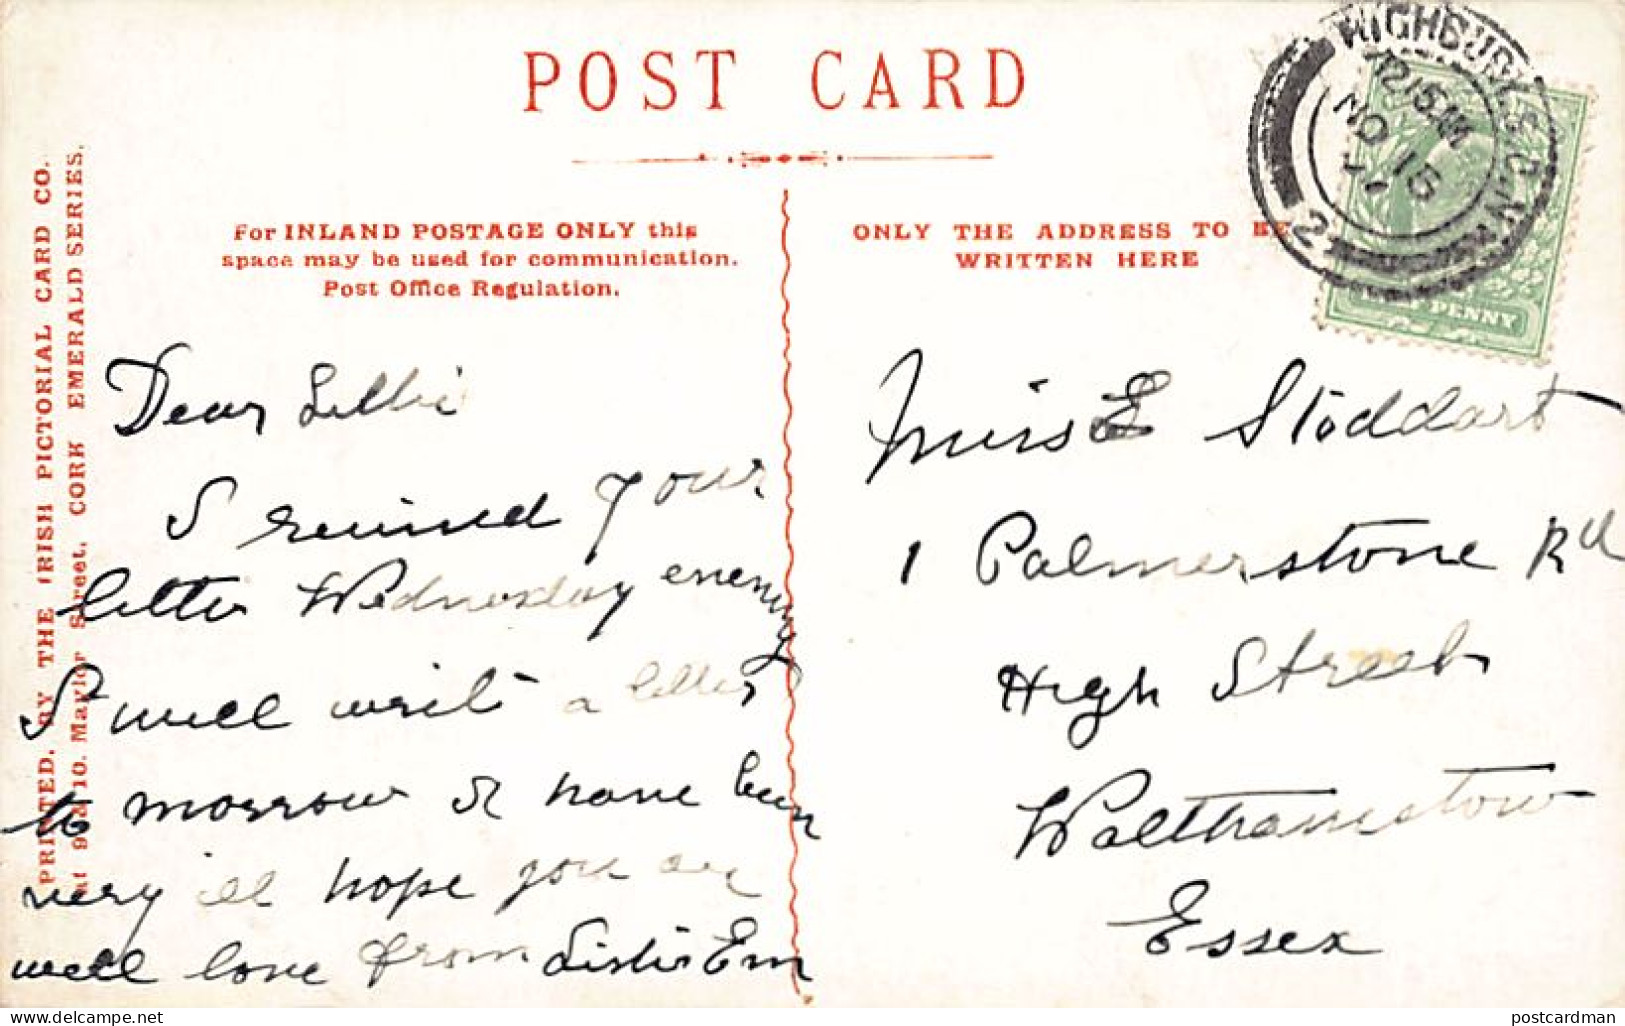 POST CARD
For INLAND POSTAGE ONLY this
space may be used for communication.
Post Office Regulation.
ONLY THE ADDRESS TO BE
WRITTEN HERE
PRINTED BY THE IRISH PICTORIAL CARD CO.
at 9 & 10 Maylor Street, CORK EMERALD SERIES.
Dear Lillie
I received your
letter Wednesday evening
I will write a letter
to morrow I have been
very ill hope you are
well love from Sister Em
Miss E Stoddart
1 Palmerstone Rd
High Street
Walthamstow
Essex
HIGHBURY S.O.N.
12/15AM
NO 15
2
PENNY
delcampe.net
postcardman